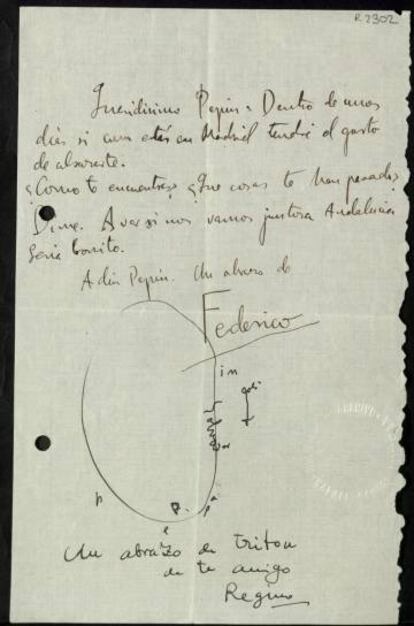 R 2302
Queridisimo Pepin: Dentro de unos
dias si aun estás en Madrid tendré el gusto
de abrazarte.
¿Como te encuentras? ¿Que cosas te han pasado?
Dime. A ver si nos vamos juntos a Andalucia
Seria bonito.
Adios Pepin. Un abrazo de
Federico
in
p
P.
e
Un abrazo de triton
de tu amigo
Regino